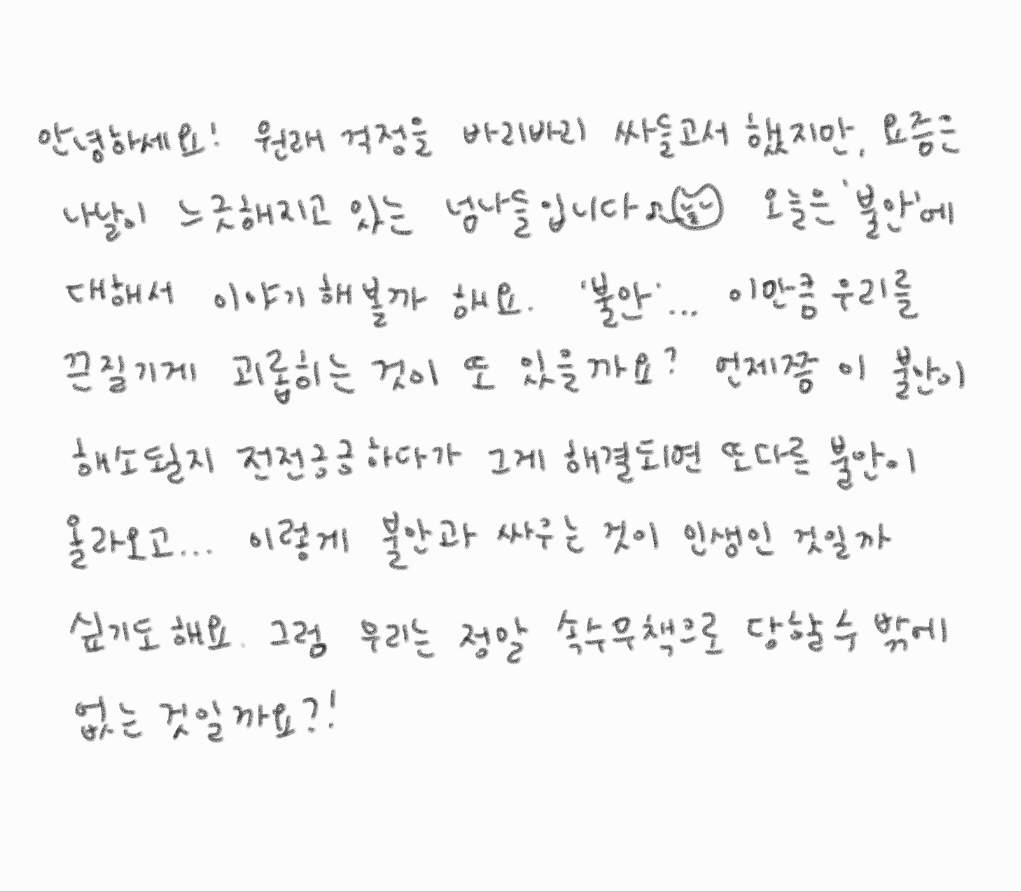 안녕하세요! 원래 걱정을 바리바리 싸들고서 했지만, 요즘은
나날이 느긋해지고 있는 넘나들입니다♪ 오늘은 '불안'에
대해서 이야기 해볼까 해요. '불안'... 이만큼 우리를
끈질기게 괴롭히는 것이 또 있을까요? 언제쯤 이 불안이
해소될지 전전긍긍하다가 그게 해결되면 또다른 불안이
올라오고... 이렇게 불안과 싸우는 것이 인생인 것일까
싶기도 해요. 그럼 우리는 정말 속수무책으로 당할 수 밖에
없는 것일까요?!